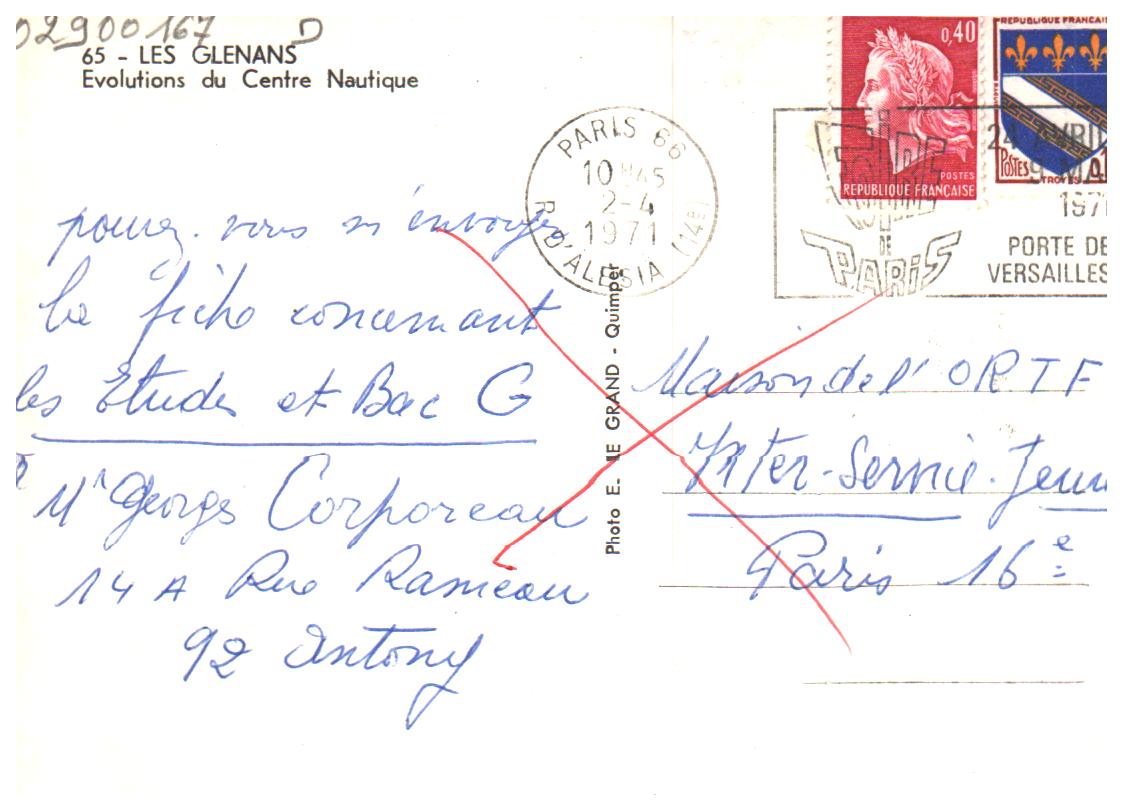 02900167 D
65 - LES GLENANS
Evolutions du Centre Nautique
pouvez-vous m'envoyer
la fiche concernant
les Etudes et Bac G
Mr Georges Corporeau
14 A Rue Rameau
92 Antony
Photo E. LE GRAND - Quimper
PARIS 66
10H45
2-4
1971
R. D'ALESIA (14e)
0,40
POSTES
REPUBLIQUE FRANÇAISE
REPUBLIQUE FRANCAI
POSTES
TROYES
0,1
FOIRE
DE
PARIS
24 AVRIL
9 MA
1971
PORTE DE
VERSAILLES
Maison de l'ORTF
Inter-Service-Jeun
Paris 16e